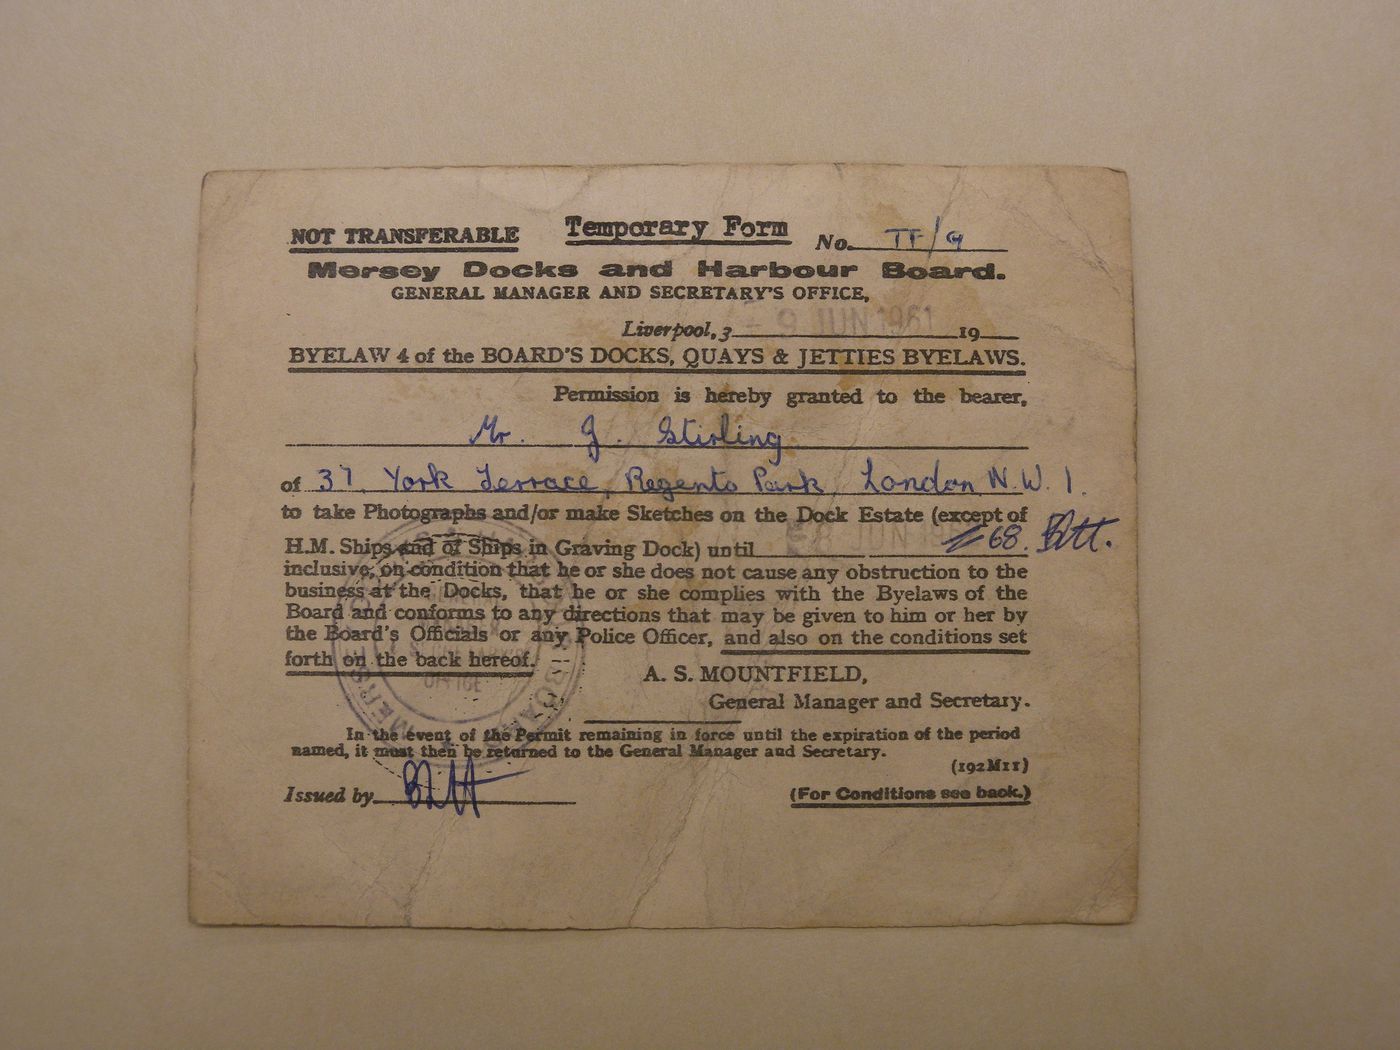 NOT TRANSFERABLE Temporary Form No. TF/G
Mersey Docks and Harbour Board.
GENERAL MANAGER AND SECRETARY'S OFFICE,
Liverpool, 3 - 9 JUN 1961 19
BYELAW 4 of the BOARD'S DOCKS, QUAYS & JETTIES BYELAWS.
Permission is hereby granted to the bearer,
Mr. J. Stirling
of 37, York Terrace, Regents Park, London N.W.1.
to take Photographs and/or make Sketches on the Dock Estate (except of
H.M. Ships and of Ships in Graving Dock) until 8 JUN 68.
inclusive, on condition that he or she does not cause any obstruction to the
business at the Docks, that he or she complies with the Byelaws of the
Board and conforms to any directions that may be given to him or her by
the Board's Officials or any Police Officer, and also on the conditions set
forth on the back hereof.
A. S. MOUNTFIELD,
General Manager and Secretary.
In the event of the Permit remaining in force until the expiration of the period
named, it must then be returned to the General Manager and Secretary.
(192M11)
Issued by (For Conditions see back.)